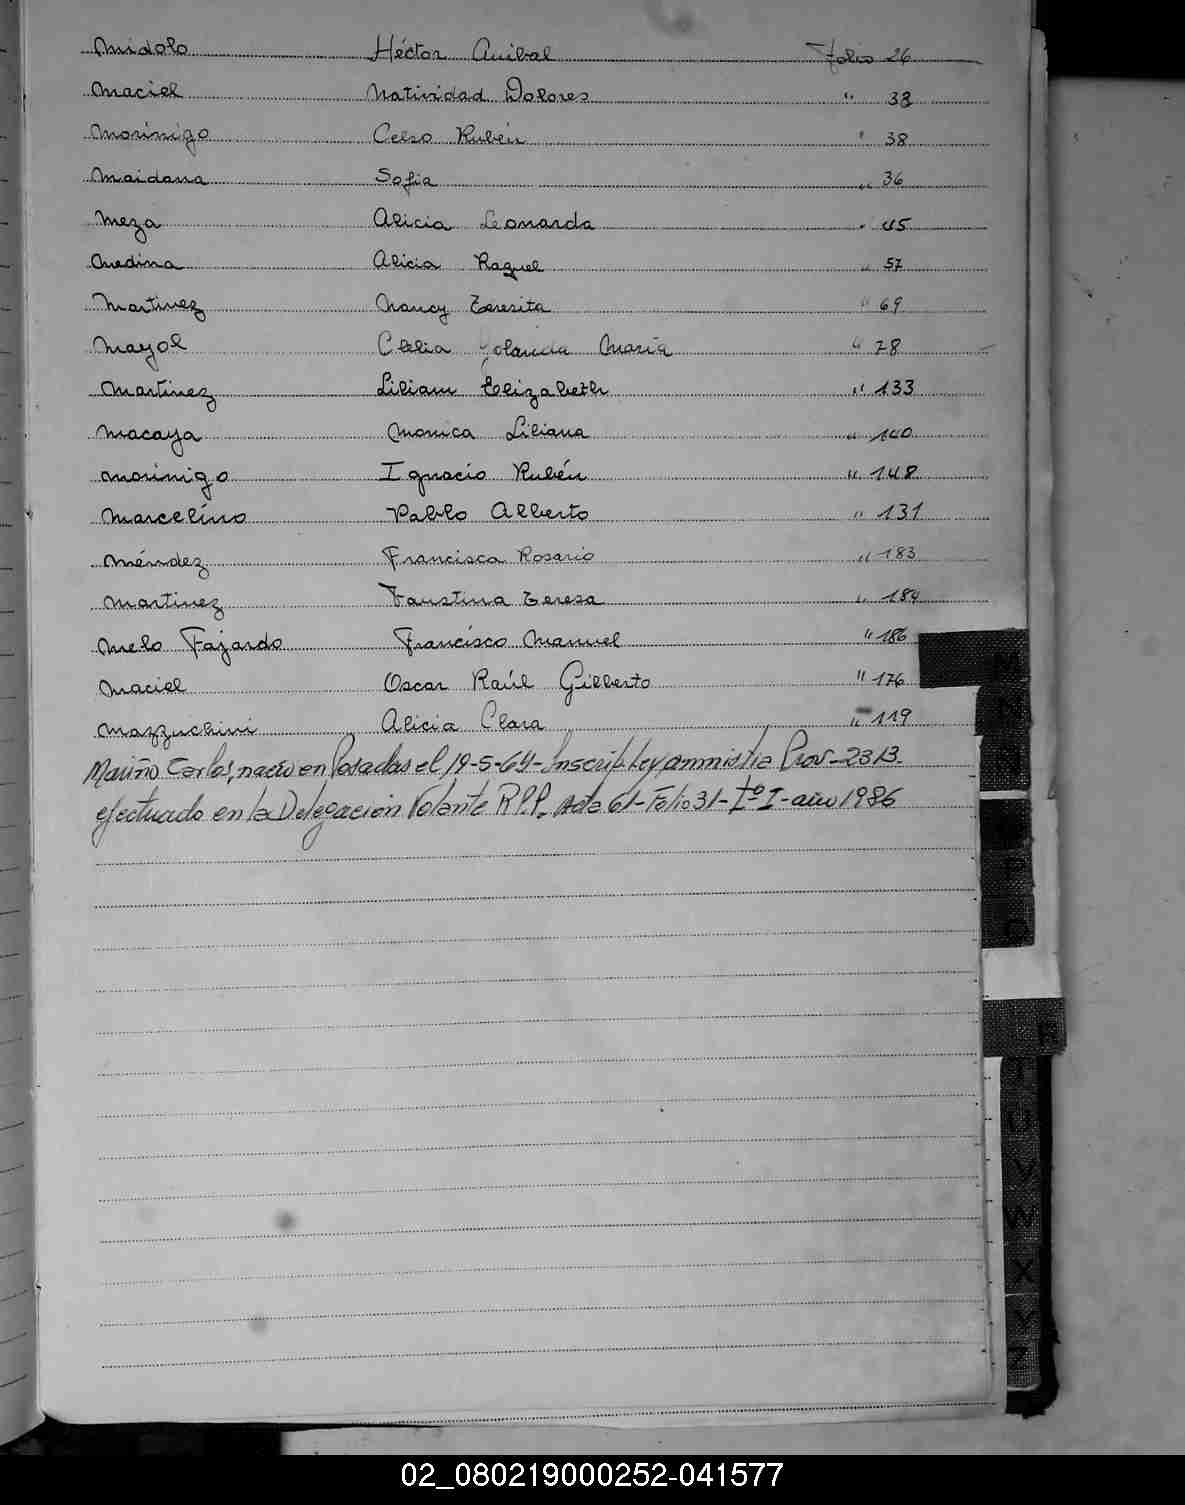 Midolo Héctor Anibal Folio 26
Maciel Natividad Dolores " 38
Morinigo Celso Rubén " 38
Maidana Sofia " 36
Meza Alicia Leonarda " 45
Medina Alicia Raquel " 57
Martinez Nancy Teresita " 69
Mayol Clelia Yolanda Maria " 78
Martinez Liliam Elizabeth " 133
Macaya Monica Liliana " 140
Morinigo Ignacio Rubén " 148
Marcelino Pablo Alberto " 131
Méndez Francisca Rosario " 183
Martinez Faustina Teresa " 184
Melo Fajardo Francisco Manuel " 186
Maciel Oscar Raúl Gilberto " 176
Mazzuchini Alicia Clara " 119
Mariño Carlos, nacio en Posadas el 19-5-64- Inscrip. Ley amnistia Prov- 2313-
efectuado en la Delegación Volante R.P.P. Acta 61- Folio 31- Tº I- año 1986
M
U
V
W
X
Y
Z
02_080219000252-041577